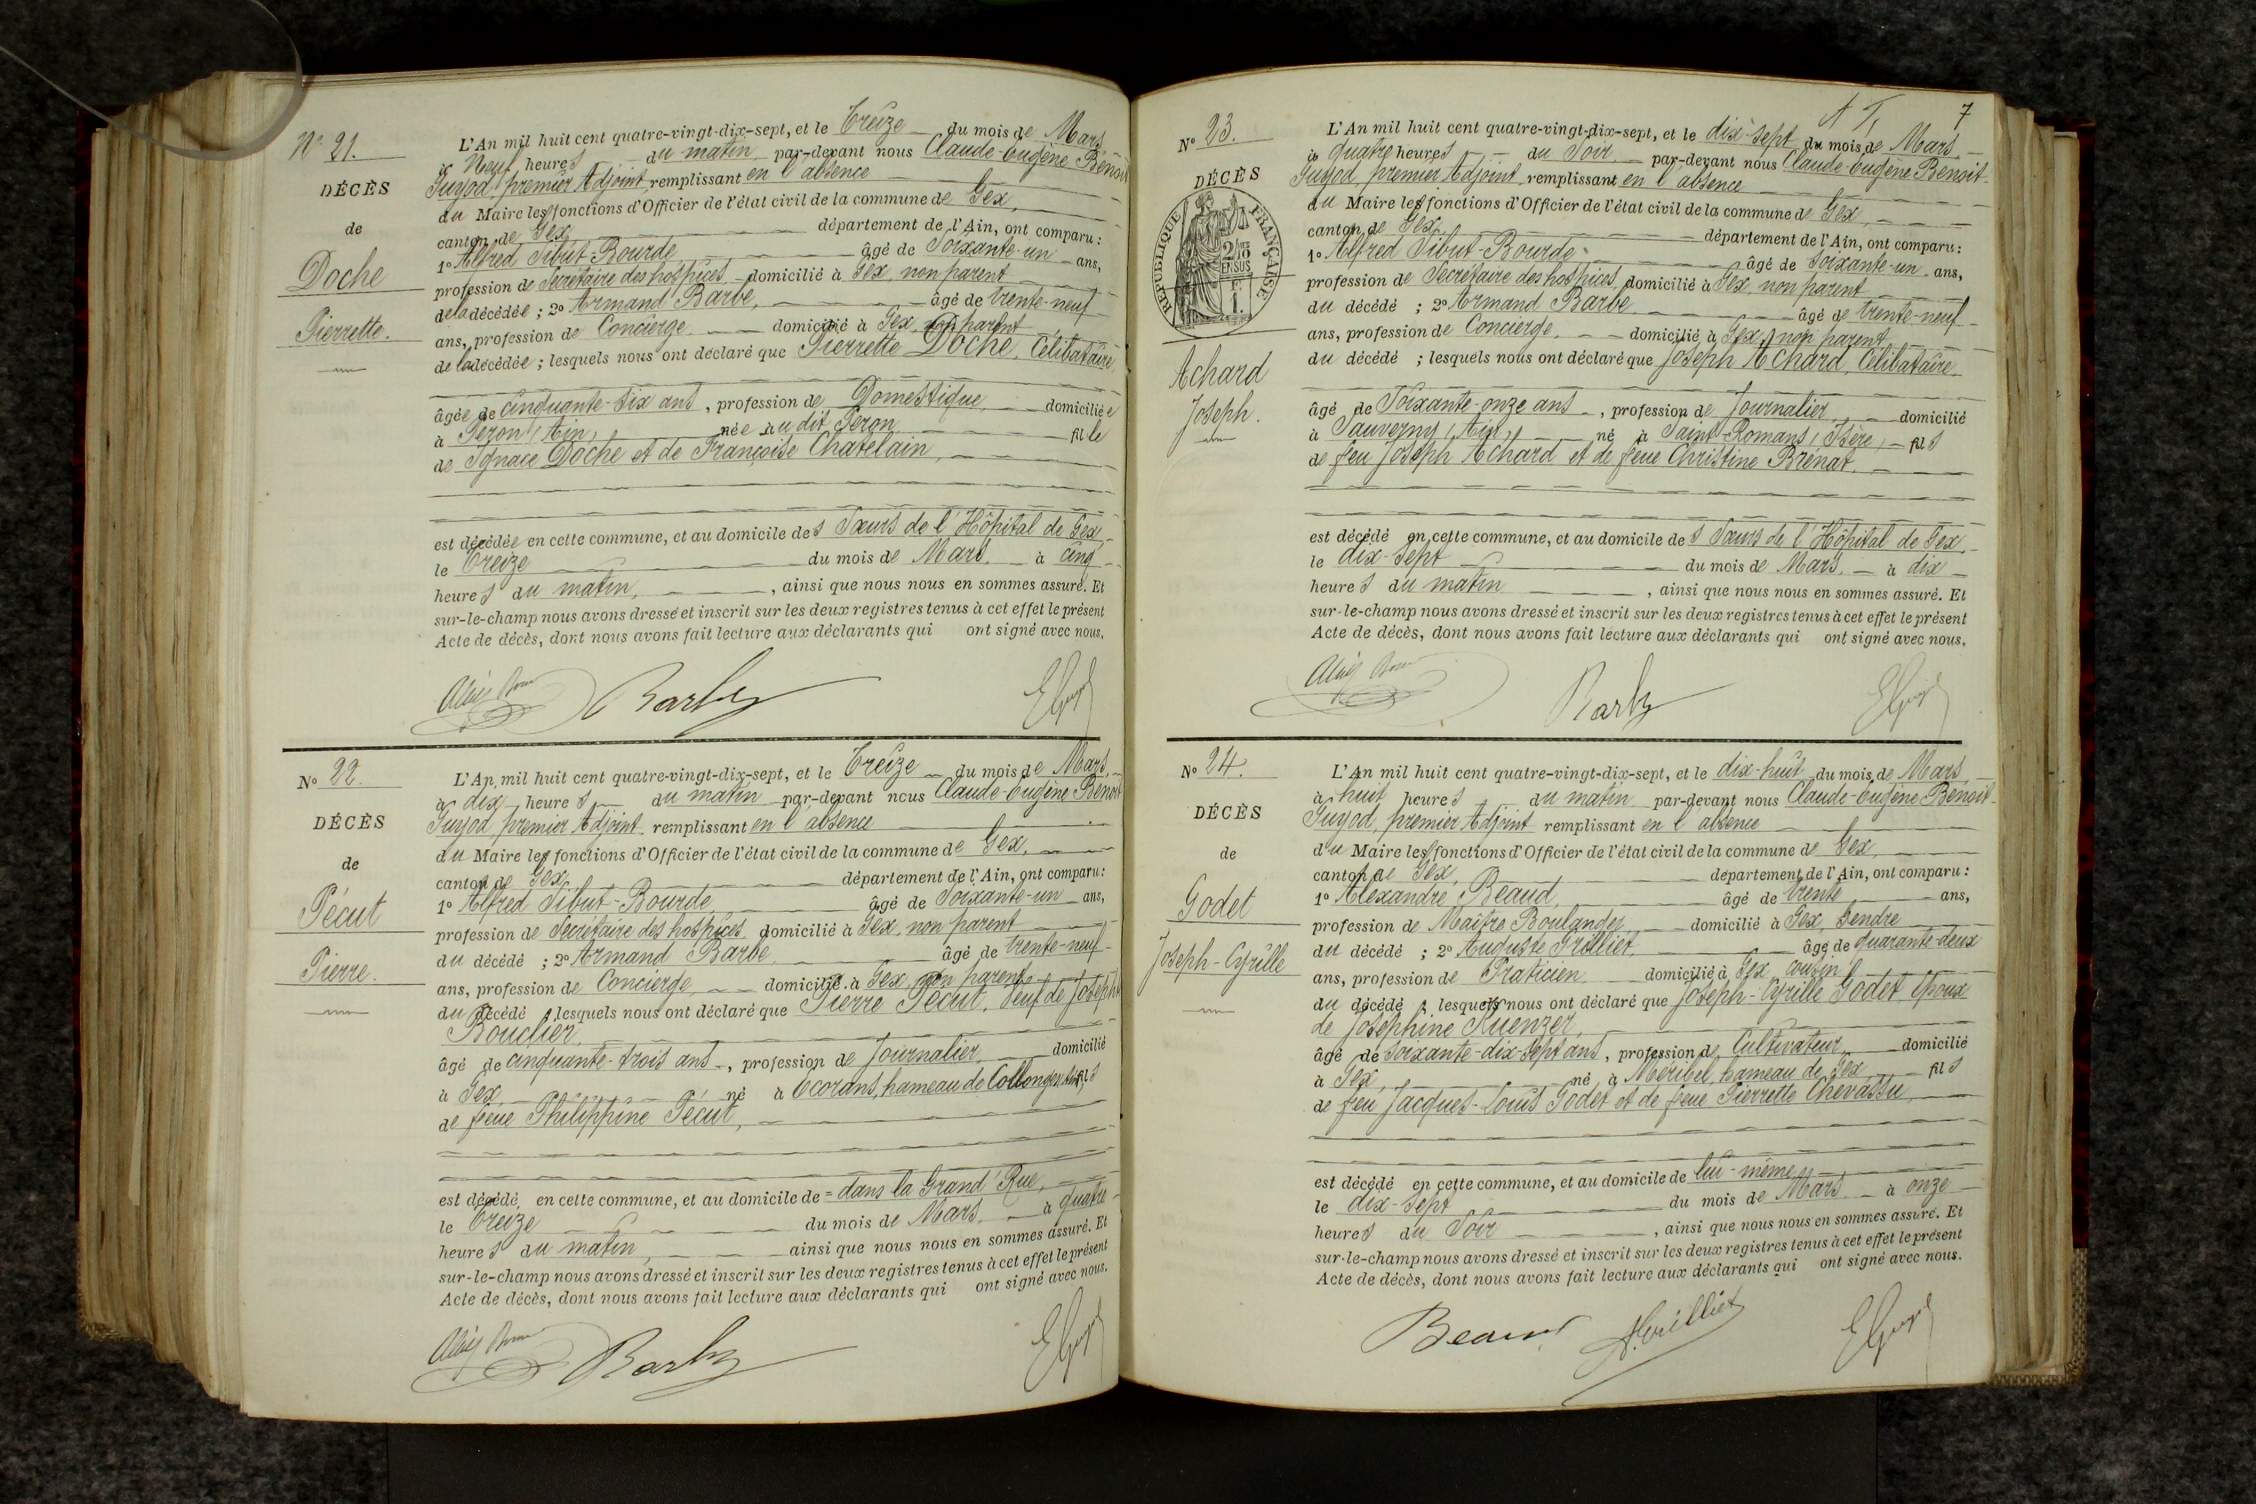 Nº 21.
DÉCÈS
de
Doche
Pierrette.
L'An mil huit cent quatre-vingt-dix-sept, et le Treize du mois de Mars
à Neuf heures du matin par-devant nous Claude-Eugène Benoit
Guyod, premier Adjoint remplissant en l'absence
du Maire les fonctions d'Officier de l'état civil de la commune de Gex,
canton de Gex, département de l'Ain, ont comparu :
1º Alfred Sibut-Bourde âgé de Soixante-un ans,
profession de Secrétaire des hospices domicilié à Gex, non parent
de la décédée ; 2º Armand Barbe, âgé de trente-neuf
ans, profession de Concierge domicilié à Gex, non parent
de la décédée ; lesquels nous ont déclaré que Pierrette Doche, Célibataire
âgée de cinquante-six ans, profession de Domestique domiciliée
à Peron (Ain), née audit Peron fille
de Ignace Doche et de Françoise Chatelain,
est décédée en cette commune, et au domicile des Sœurs de l'Hôpital de Gex,
le Treize du mois de Mars à cinq
heures du matin, ainsi que nous nous en sommes assuré. Et
sur-le-champ nous avons dressé et inscrit sur les deux registres tenus à cet effet le présent
Acte de décès, dont nous avons fait lecture aux déclarants qui ont signé avec nous.
Barbe
Nº 22.
DÉCÈS
de
Pécut
Pierre.
L'An mil huit cent quatre-vingt-dix-sept, et le Treize du mois de Mars,
à dix heures du matin par-devant nous Claude-Eugène Benoit
Guyod, premier Adjoint remplissant en l'absence
du Maire les fonctions d'Officier de l'état civil de la commune de Gex,
canton de Gex, département de l'Ain, ont comparu :
1º Alfred Sibut-Bourde âgé de Soixante-un ans,
profession de Secrétaire des hospices domicilié à Gex, non parent
du décédé ; 2º Armand Barbe âgé de trente-neuf
ans, profession de Concierge domicilié à Gex, non parent
du décédé lesquels nous ont déclaré que Pierre Pécut, Veuf de Josephte
Bouclier,
âgé de cinquante-trois ans, profession de Journalier domicilié
à Gex né à Ecorans, hameau de Collonges fils
de feue Philippine Pécut,
est décédé en cette commune, et au domicile de = dans la Grand'Rue,
le Treize du mois de Mars, à quatre
heures du matin, ainsi que nous nous en sommes assuré. Et
sur-le-champ nous avons dressé et inscrit sur les deux registres tenus à cet effet le présent
Acte de décès, dont nous avons fait lecture aux déclarants qui ont signé avec nous.
Barbe
7
Nº 23.
DÉCÈS
RÉPUBLIQUE FRANÇAISE
2/10
EN SUS
Achard
Joseph.
L'An mil huit cent quatre-vingt-dix-sept, et le dix-sept du mois de Mars
à quatre heures du Soir par-devant nous Claude-Eugène Benoit
Guyod, premier Adjoint remplissant en l'absence
du Maire les fonctions d'Officier de l'état civil de la commune de Gex,
canton de Gex, département de l'Ain, ont comparu :
1º Alfred Sibut-Bourde âgé de Soixante-un ans,
profession de Secrétaire des hospices domicilié à Gex, non parent
du décédé ; 2º Armand Barbe âgé de trente-neuf
ans, profession de Concierge, domicilié à Gex, non parent
du décédé ; lesquels nous ont déclaré que Joseph Achard, Célibataire
âgé de Soixante-onze ans, profession de Journalier, domicilié
à Sauverny (Ain), né à Saint-Romans (Isère) fils
de feu Joseph Achard et de feue Christine Brénat,
est décédé en cette commune, et au domicile des Sœurs de l'Hôpital de Gex,
le dix-sept du mois de Mars à dix
heures du matin, ainsi que nous nous en sommes assuré. Et
sur-le-champ nous avons dressé et inscrit sur les deux registres tenus à cet effet le présent
Acte de décès, dont nous avons fait lecture aux déclarants qui ont signé avec nous.
Barbe
Nº 24.
DÉCÈS
de
Godet
Joseph-Cyrille
L'An mil huit cent quatre-vingt-dix-sept, et le dix-huit du mois de Mars
à huit heures du matin par-devant nous Claude-Eugène Benoit
Guyod, premier Adjoint remplissant en l'absence
du Maire les fonctions d'Officier de l'état civil de la commune de Gex,
canton de Gex, département de l'Ain, ont comparu :
1º Alexandre Beaud, âgé de trente ans,
profession de Maître Boulanger domicilié à Gex, Gendre
du décédé ; 2º Auguste Grilliet, âgé de quarante-deux
ans, profession de Praticien domicilié à Gex, cousin
du décédé ; lesquels nous ont déclaré que Joseph-Cyrille Godet Époux
de Joséphine Kuenzer,
âgé de soixante-dix-sept ans, profession de Cultivateur domicilié
à Gex, né à Meribel, hameau de Gex fils
de feu Jacques-Louis Godet et de feue Pierrette Chevassu,
est décédé en cette commune, et au domicile de lui-même,
le dix-sept du mois de Mars à onze
heures du Soir, ainsi que nous nous en sommes assuré. Et
sur-le-champ nous avons dressé et inscrit sur les deux registres tenus à cet effet le présent
Acte de décès, dont nous avons fait lecture aux déclarants qui ont signé avec nous.
Beaud A. Grilliet